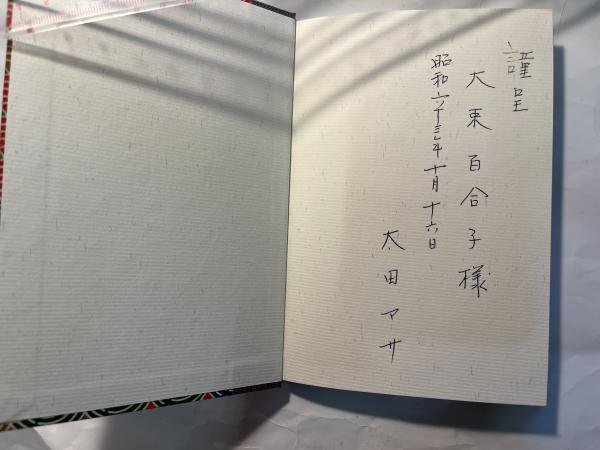 謹呈
大束百合子様
昭和六十三年十月十六日
太田マサ